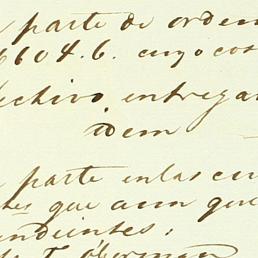 parte de orden
6604.6. cuyo cos
echivo, entregar
idem
parte en las cu
tes que aun que
endientes,